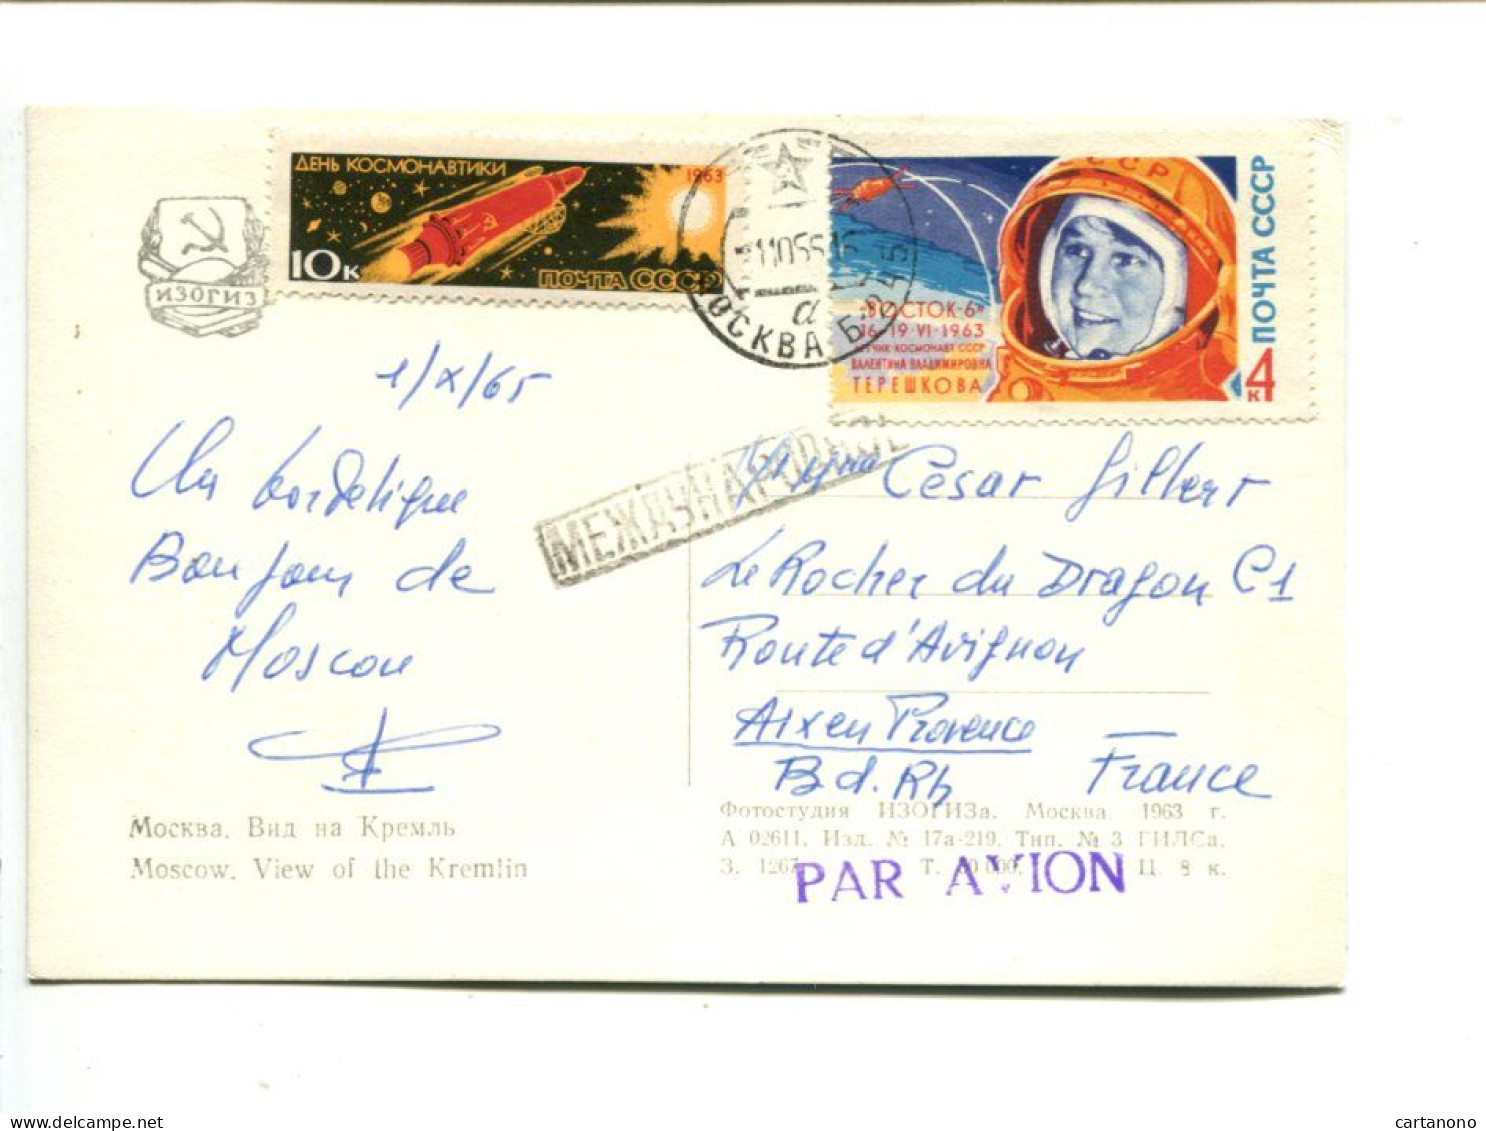 ДЕНЬ КОСМОНАВТИКИ
1963
10к
ПОЧТА СССР
ИЗОГИЗ
МОСКВА
СССР
ВОСТОК-6
16-19·VI·1963
ЛЕТЧИК КОСМОНАВТ СССР
ВАЛЕНТИНА ВЛАДИМИРОВНА
ТЕРЕШКОВА
ПОЧТА СССР
4к
МЕЖДУНАРОДНОЕ
1/X/65
Un
Bonjour de
Moscou
César Gilbert
Le Rocher du Dragon C1
Route d'Avignon
Aix en Provence
Bd. Rh France
Москва. Вид на Кремль
Moscow. View of the Kremlin
Фотостудия ИЗОГИЗа. Москва 1963 г.
А 02611. Изд. № 17а-219. Тип. № 3 ГИЛСа.
З. 1267 Т. Ц. 8 к.
PAR AVION
cartanono.net
cartanono